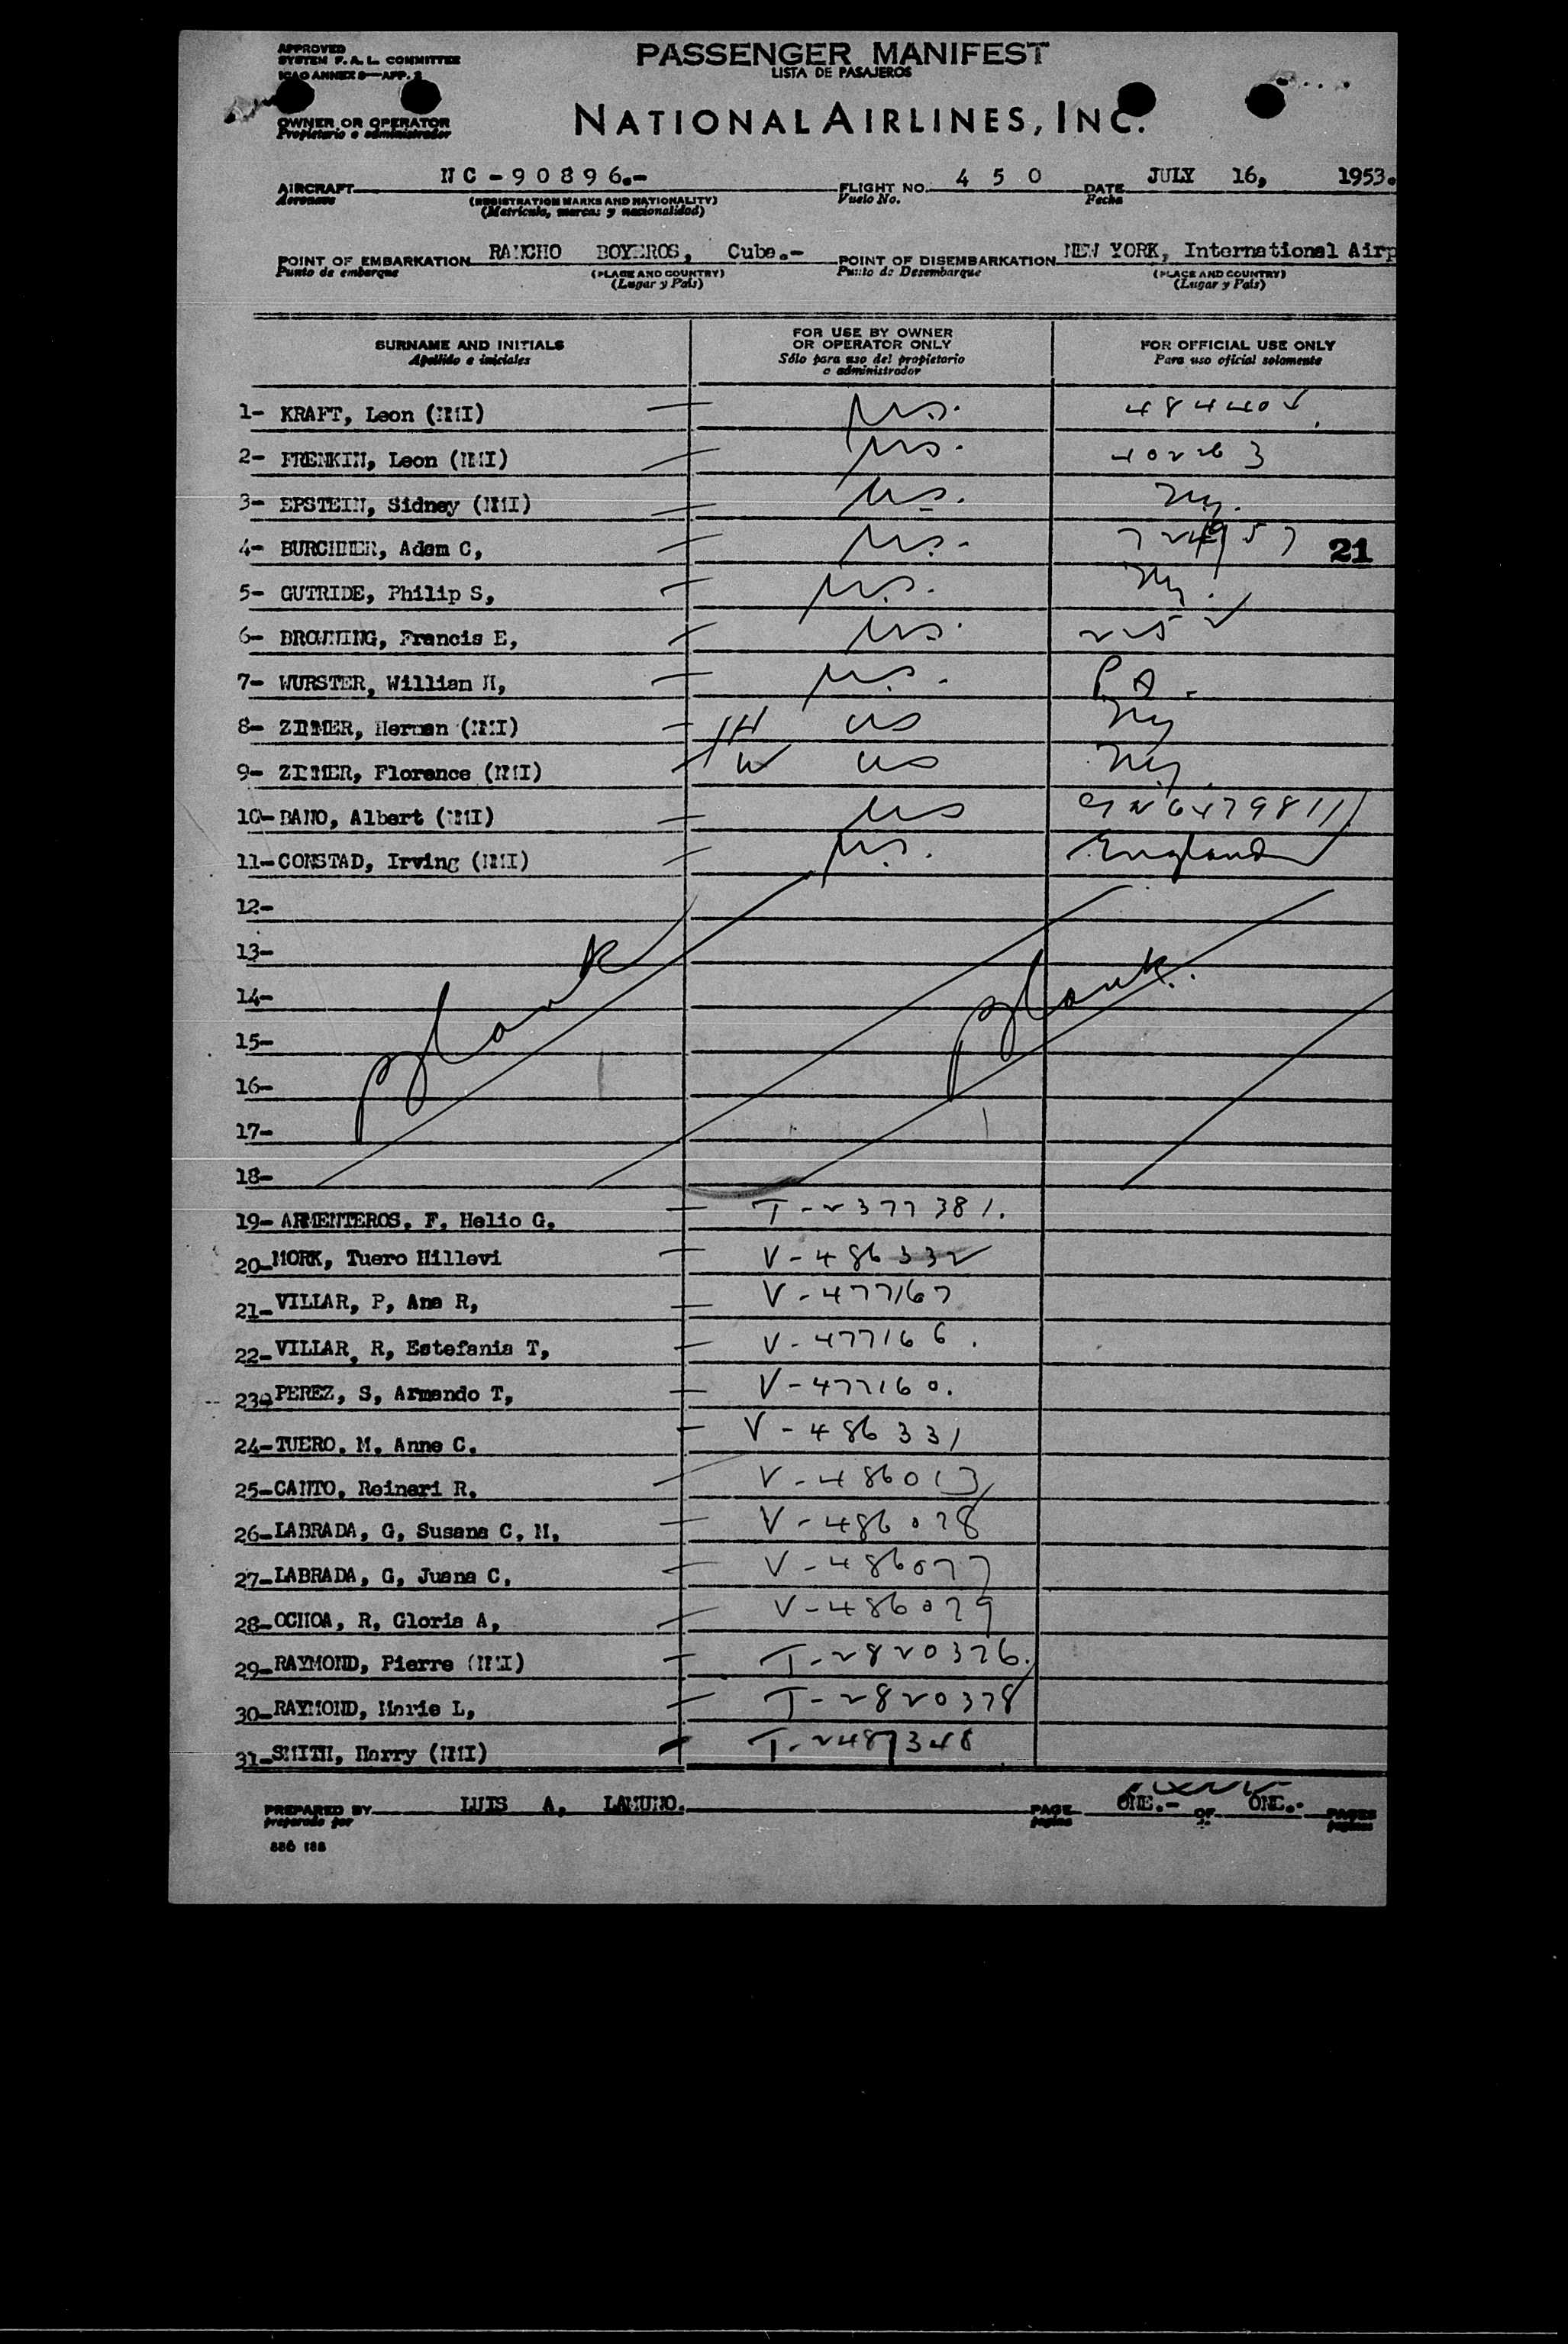 APPROVED
SYSTEM F.A.L. COMMITTEE
ICAO ANNEX 9—APP. 2
PASSENGER MANIFEST
LISTA DE PASAJEROS
OWNER OR OPERATOR
Propietario o administrador
NATIONAL AIRLINES, INC.
AIRCRAFT NC-90896.- FLIGHT NO. 4 5 0 DATE JULY 16, 1953.
Aeronave (REGISTRATION MARKS AND NATIONALITY) Vuelo No. Fecha
(Matrícula, marcas y nacionalidad)
POINT OF EMBARKATION RANCHO BOYEROS, Cuba.- POINT OF DISEMBARKATION NEW YORK, International Airp
Punto de embarque (PLACE AND COUNTRY) Punto de Desembarque (PLACE AND COUNTRY)
(Lugar y País) (Lugar y País)
SURNAME AND INITIALS FOR USE BY OWNER OR OPERATOR ONLY FOR OFFICIAL USE ONLY
Apellido e iniciales Sólo para uso del propietario o administrador Para uso oficial solamente
1- KRAFT, Leon (NMI) U.S.
2- FRENKIN, Leon (NMI) U.S. 402263
3- EPSTEIN, Sidney (NMI) U.S. NY.
4- Adam C, U.S. 21
5- GUTRIDE, Philip S, U.S. NY.
6- BROWNING, Francis E, U.S. 2252
7- WURSTER, William H, U.S. PA.
8- ZIMMER, Herman (NMI) H US NY
9- ZIMMER, Florence (NMI) W US NY
10- BANO, Albert (NMI) US
11- CONSTAD, Irving (NMI) U.S. England
12-
13-
14- Blank Blank
15-
16-
17-
18-
19- ARMENTEROS, F, Helio G, T-2377381.
20- MORK, Tuero Hillevi V-486332
21- VILLAR, P, Ana R, V-477167
22- VILLAR, R, Estefania T, V-477166.
23- PEREZ, S, Armando T, V-477160.
24- TUERO, M, Anne C, V-486331
25- CANTO, Reinari R, V-486013
26- LABRADA, G, Susana C, M, V-486078
27- LABRADA, G, Juana C, V-486077
28- OCHOA, R, Gloria A, V-486079
29- RAYMOND, Pierre (NMI) T-2820376.
30- RAYMOND, Marie L, T-2820378
31- SMITH, Harry (NMI) T-2487348
PREPARED BY LUIS A, LAMUNO. PAGE ONE.- OF ONE.- PAGES
preparado por pagina de paginas